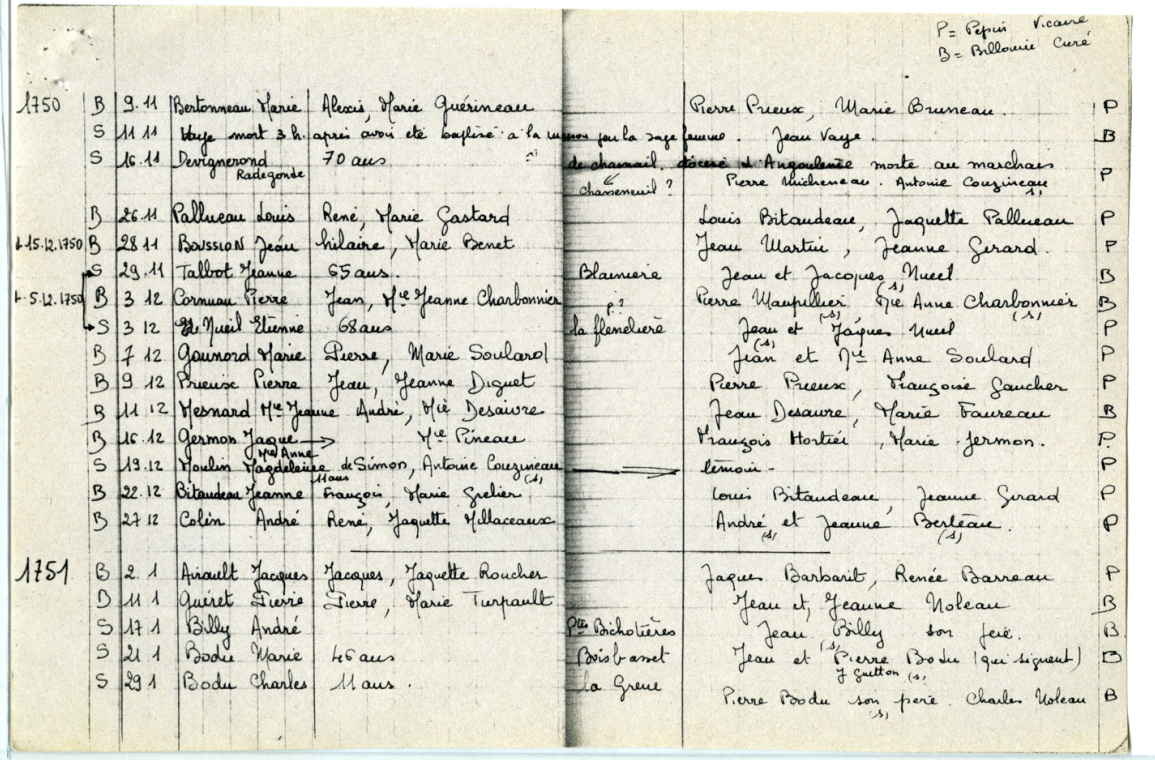 P = Pepin Vicaire
B = Billouin Curé
1750 B 9.11 Bertonneau Marie Alexis, Marie Guérineau Pierre Prieux, Marie Bruneau. P
S 11 11 Vaye mort 3 h. après avoir été baptisé à la maison par la sage femme. Jean Vaye. B
S 16.11 Devignerond 70 ans de chamail, diocese d'Angouleme morte au marchais
Radegonde chasseneuil ? Pierre Micheneau. Antoine Couzineau (s) P
B 26 11 Pallueau Louis René, Marie Gastard Louis Bitaudeau, Jaquette Pallueau P
+ 15.12.1750 B 28 11 Boussion Jean hilaire, Marie Benet Jean Martin, Jeanne Gerard. P
S 29.11 Talbot Jeanne 65 ans. Blainiere Jean et Jacques Nueil (s) B
+ 5.12.1750 B 3 12 Cornuau Pierre Jean, Mie Jeanne Charbonnier Pierre Maupillier (s) Mie Anne Charbonnier (s) B
S 3 12 Nueil Etienne 68 ans la flenelière p? Jean (s) et Jaques Nueil P
B 7 12 Gounord Marie Pierre, Marie Soulard Jean et Mie Anne Soulard P
B 9 12 Prieux Pierre Jean, Jeanne Diguet Pierre Prieux, Françoise Gaucher P
B 11 12 Mesnard Mie Jeanne André, Mie Desaivre Jean Desaivre, Marie Faureau B
B 16.12 Germon Jaque → Mie Pineau François Hortié, Marie Germon. P.
S 19.12 Moulin Mie Anne Magdeleine 11 ans de Simon, Antoine Couzineau (s) → témoin - P
B 22.12 Bitaudeau Jeanne François, Marie Grelier Louis Bitaudeau, Jeanne Girard P
B 27 12 Colin André René, Jaquette Millaceaux André (s) et Jeanne Berteau (s). P
1751 B 2.1 Airault Jacques Jacques, Jaquette Roucher Jaques Barbarit, Renée Barreau P
B 11 1 Guéret Pierre Pierre, Marie Turpault Jean et Jeanne Noleau B
S 17 1 Billy André Ptes Bichotières Jean Billy (s) son père. B
S 21 1 Bodu Marie 46 ans Boisbasset Jean et Pierre Bodu (qui signent) B
J Guitton (s)
S 29 1 Bodu Charles 11 ans. la Greue Pierre Bodu son père (s). Charles Noleau B